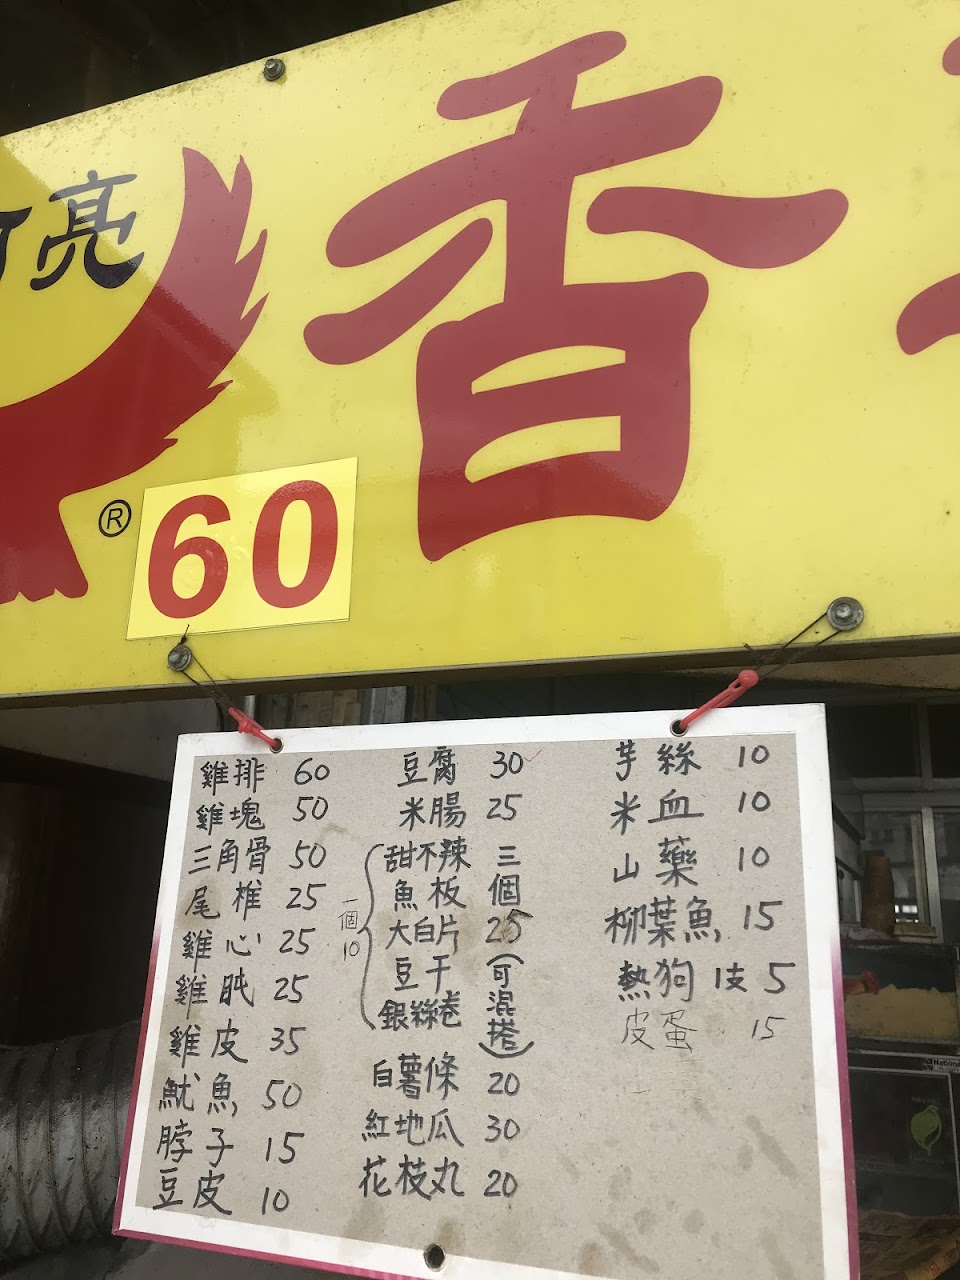 亮
香
®
60
雞排 60
雞塊 50
三角骨 50
尾椎 25
雞心 25
雞肫 25
雞皮 35
魷魚 50
脖子 15
豆皮 10
豆腐 30
米腸 25
一個10
甜不辣
魚板
大白片
豆干
銀絲卷
三個25(可混搭)
白薯條 20
紅地瓜 30
花枝丸 20
芋絲 10
米血 10
山藥 10
柳葉魚 15
熱狗 1支 5
皮蛋 15